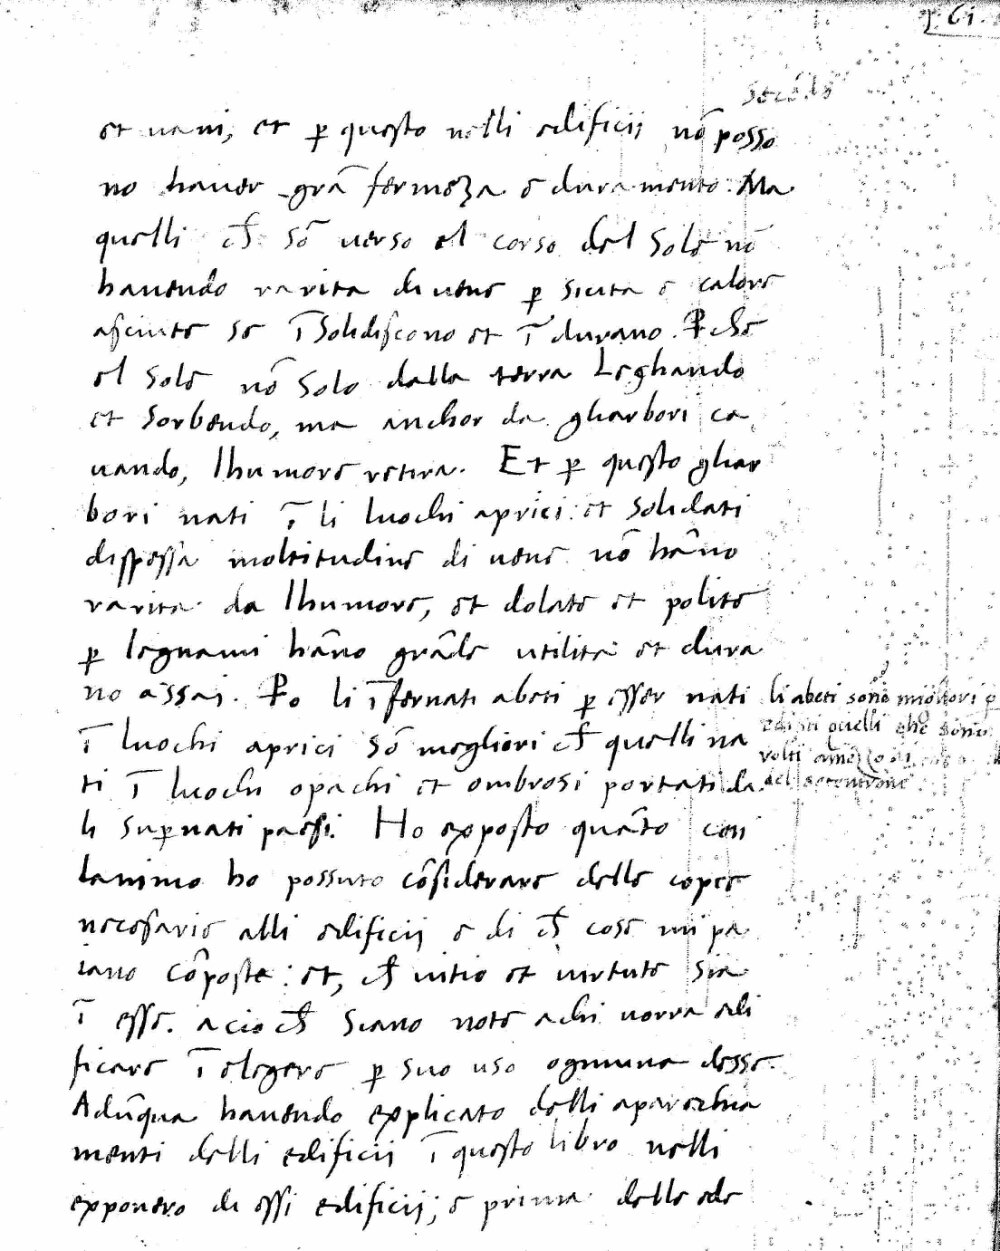 p. 61.
et uani, et p̱ questo nelli edificij nō posso
no hauer grā fermeza e duramento. Ma
quelli ch̄ sō uerso el corso del sole nō
hauendo rarita di uene p̱ sicita e calore
asciute se ī solidiscono et ī durano. P̱che
el sole nō solo dalla terra Leghando
et sorbendo, ma anchor da gharbori ca
uando, lhumore retira. Et p̱ questo ghar
bori nati ī li luochi aprici et solidati
dispessa moltitudine di uene nō hāno
rarita da lhumore, et dolate et polite
p̱ legnami hāno grāde utilita et dura
no assai. P̱o li īfernati abeti p̱ esser nati
ī luochi aprici sō megliori ch̄ quelli na
ti ī luochi opachi et ombrosi portati da
li sup̱nati paesi. Ho exposto quāto con
lanimo ho possuto cōsiderare delle copie
necesarie alli edificij e di ch̄ cose mi pa
iano cōposte: et, ch̄ uitio et uirtute sia
ī esse. acio ch̄ siano note achi uorra edi
ficare ī elegere p̱ suo uso ogniuna desse.
Adūqua hauendo explicato delli aparechia
menti delli edificij ī questo libro nelli
exponero di essi edificij; e prima delle ede
li abeti sono migliori p̱
edifici quelli che sono
volti
del setentrione